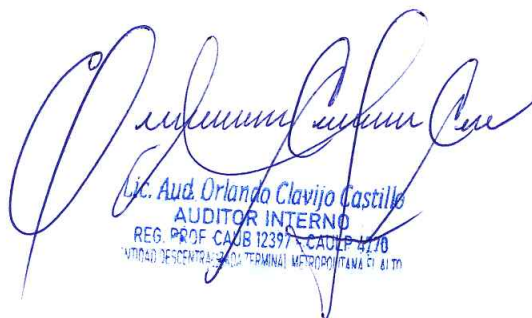 Lic. Aud. Orlando Clavijo Castillo
AUDITOR INTERNO
REG. PROF. CAUB 12397 - CAULP 4270
ENTIDAD DESCENTRALIZADA TERMINAL METROPOLITANA EL ALTO